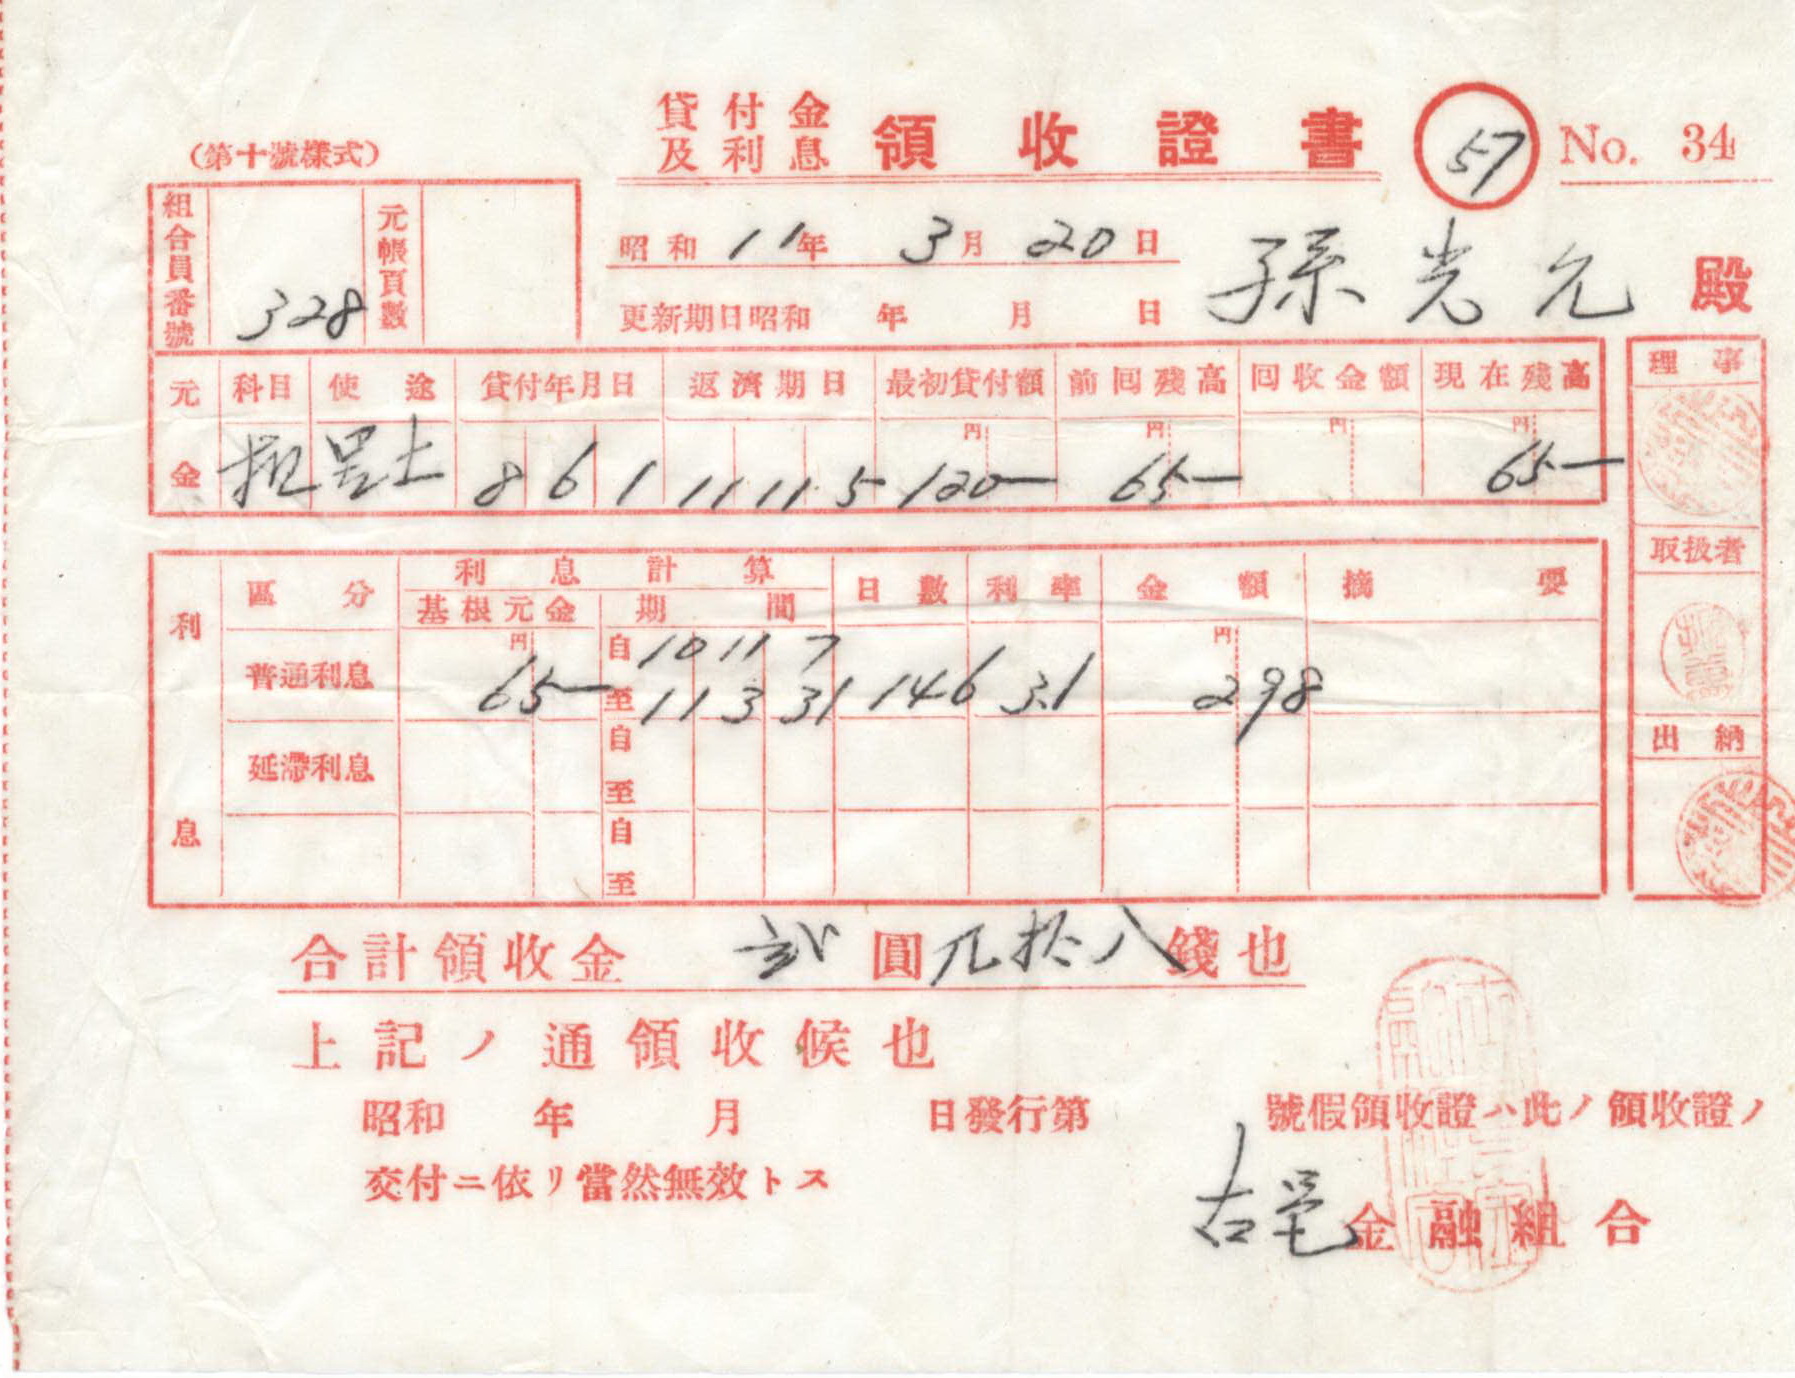 （第十號樣式）
貸付金
及利息
領收證書
57
No. 34
組合員番號
328
元帳頁數
昭和 11年 3月 20日
更新期日昭和 年 月 日
孫光允 殿
元金
科目 使途 貸付年月日 返濟期日 最初貸付額 前回残高 回收金額 現在残高
円 円 円 円
8 6 1 11 11 5 120— 65— 65—
理事
取扱者
出納
利息
區分 利息計算 日數 利率 金額 摘要
基根元金 期間
円 円
普通利息 65— 自 10 11 7
至 11 3 31 146 3.1 2 98
延滯利息 自
至
自
至
合計領收金 弐圓九拾八錢也
上記ノ通領收候也
昭和 年 月 日發行第 號假領收證ハ此ノ領收證ノ
交付ニ依リ當然無效トス
古邑金融組合